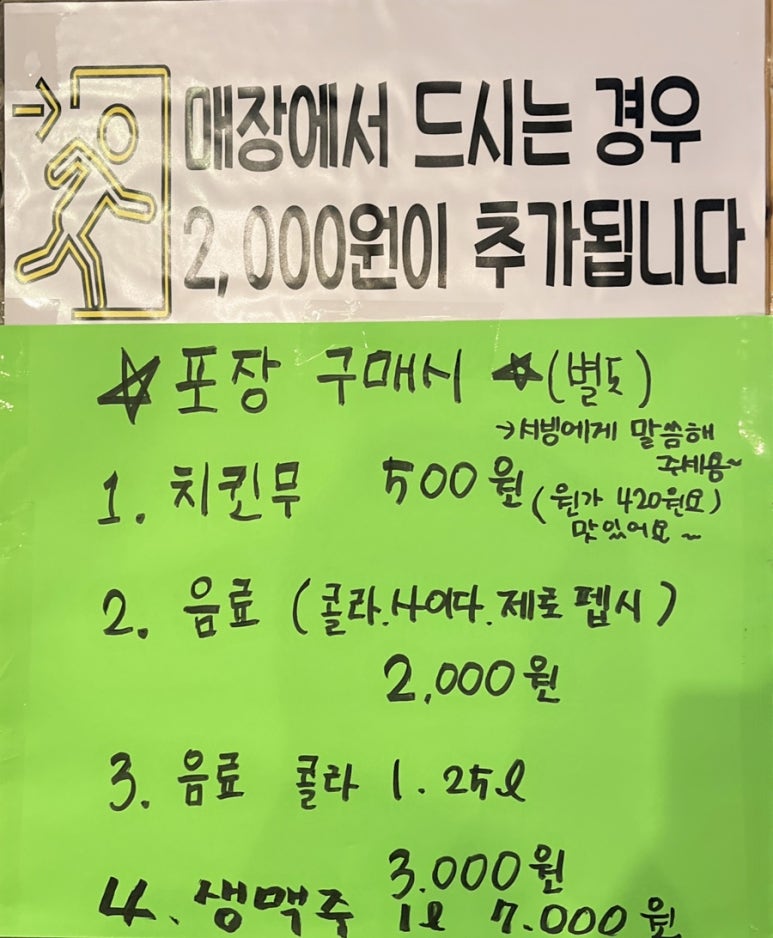 매장에서 드시는 경우
2,000원이 추가됩니다
☆포장 구매시 ☆(별도)
→서빙에게 말씀해
주세용~
1. 치킨무 500원
(원가 420원요)
맛있어요~
2. 음료 (콜라.사이다.제로펩시)
2,000원
3. 음료 콜라 1.25l
3.000원
4. 생맥주 1l 7.000원